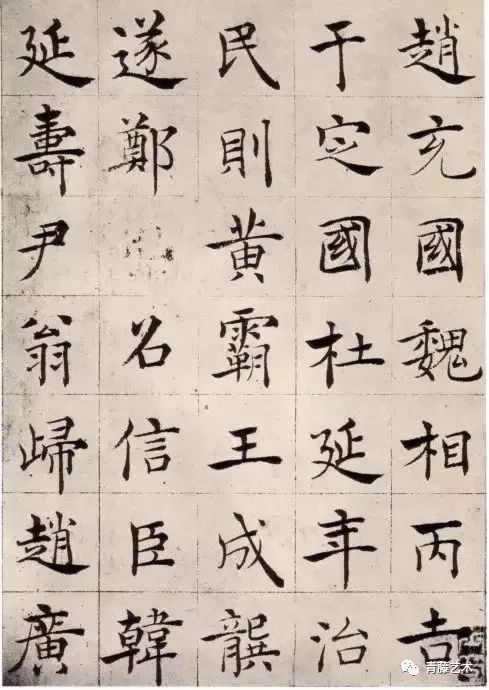 趙充國魏相丙吉
于定國杜延年治
民則黃霸王成龔
遂鄭召信臣韓
延壽尹翁歸趙廣
青藤艺术